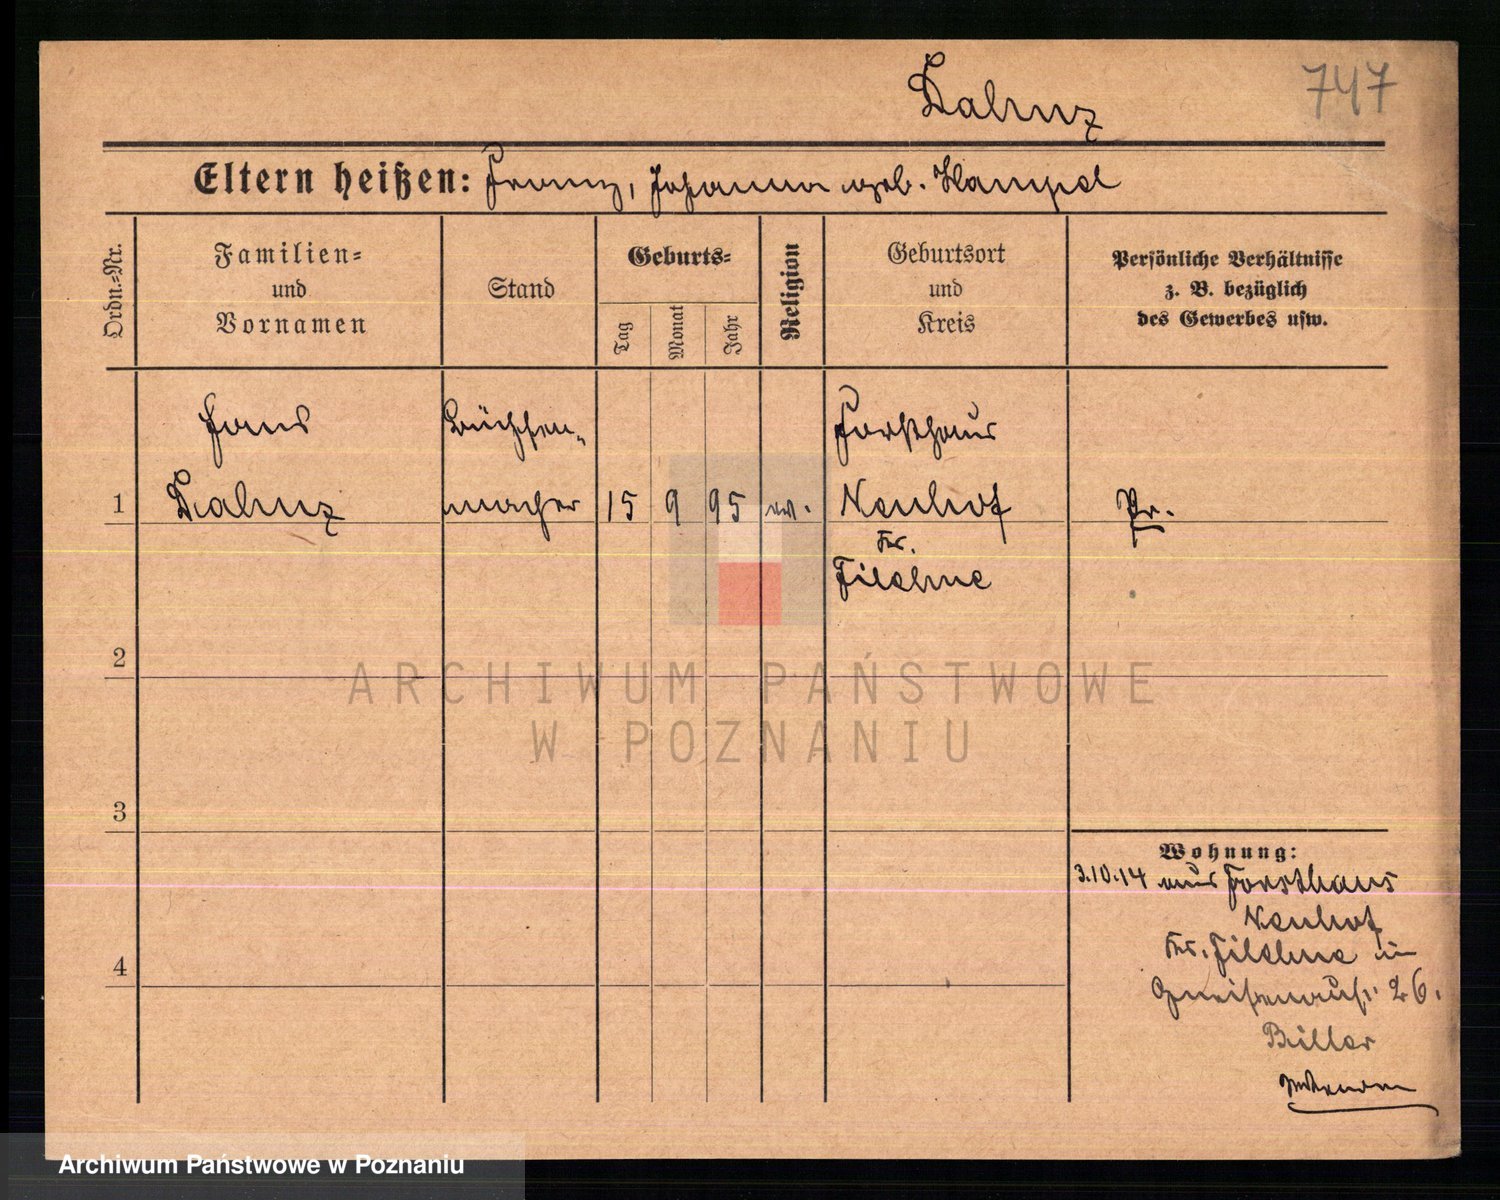 747
Eltern heißen: Franz, Johanna geb. Hampel
Ordn.=Nr.
Familien=
und
Vornamen
Stand
Geburts=
Tag
Monat
Jahr
Religion
Geburtsort
und
Kreis
Persönliche Verhältnisse
z. B. bezüglich
des Gewerbes usw.
Hans
Büchsen-
Forsthaus
1
macher
15
9
95
ev.
Neuhof
Pr.
Kr.
Filehne
2
ARCHIWUM PAŃSTWOWE
W POZNANIU
3
Wohnung:
3.10.14 aus Forsthaus
Neuhof
4
Kr. Filehne in
Gneisenaustr. 26.
Biller
Archiwum Państwowe w Poznaniu